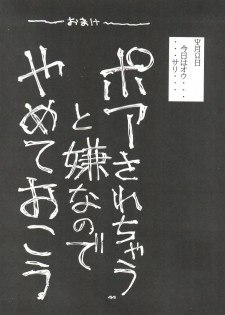 おまけ
4月25日
今日はオウ・・・・
・・・サリ・・・・
ポアされちゃう
と嫌なので
やめておこう